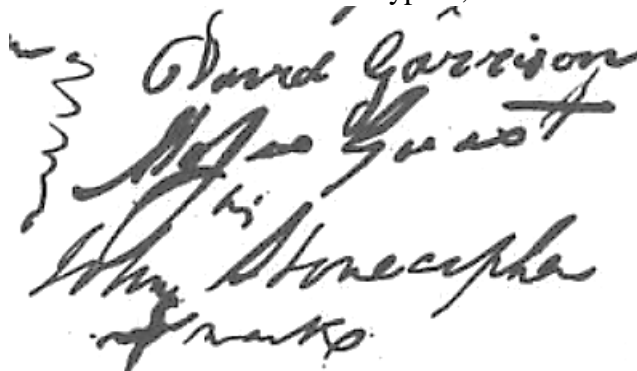 David Garrison
Moses Guest
his
John Stonecipher
mark